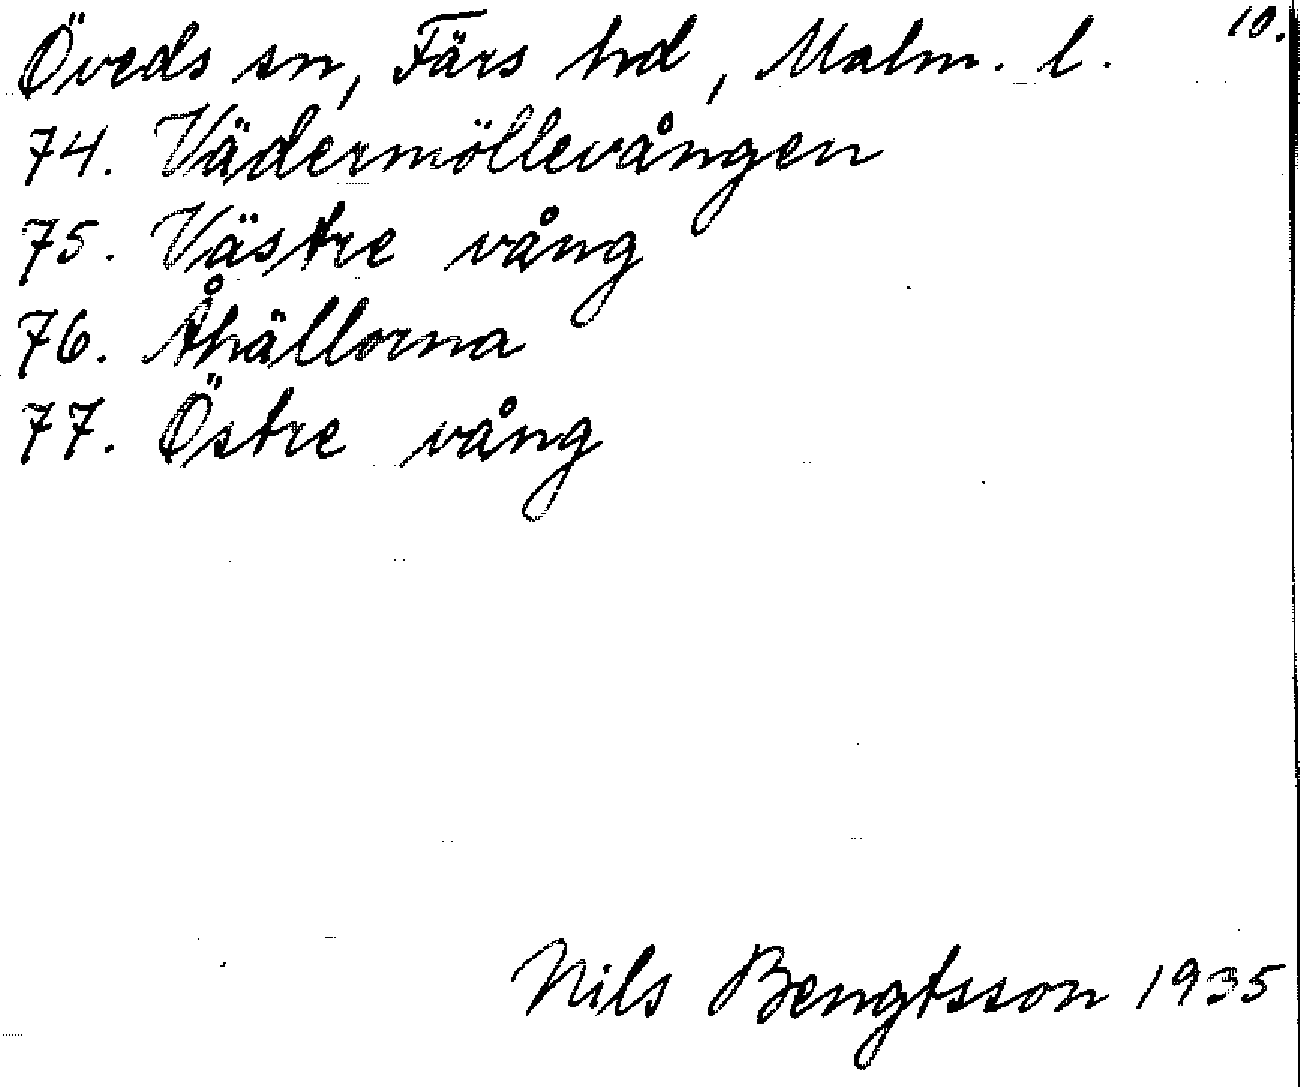 Öveds sn, Färs hd, Malm. l. 10.
74. Vädermöllevången
75. Västre vång
76. Åhällorna
77. Östre vång
Nils Bengtsson 1935